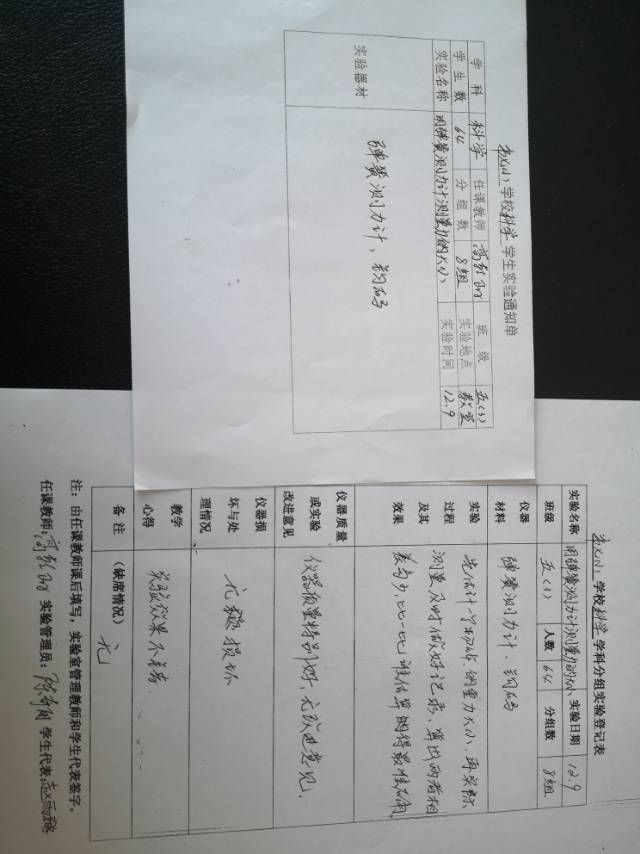 学校科学学生实验通知单
学科 科学 任课教师 班级 五(3)
学生数 64 分组数 8组 实验地点 教室
实验名称 用弹簧测力计测重力的大小 实验时间 12.9
实验器材 弹簧测力计,钩码
学校科学学科分组实验登记表
实验名称 用弹簧测力计测重力的大小 实验日期 12.9
班级 五(3) 人数 64 分组数 8组
仪器材料 弹簧测力计、钩码
实验过程及其效果 先估计一个物体的重力大小,再实际
测量及时做好记录,算出两者相
差多少,比一比谁估算的得最准确
仪器质量或实验改进意见 仪器质量特别好,无改进意见.
仪器损坏与处理情况 无损坏
教学心得 实验效果不错.
备注 (缺席情况) 无
注:由任课教师课后填写,实验室管理教师和学生代表签字。
任课教师: 实验管理员: 学生代表: